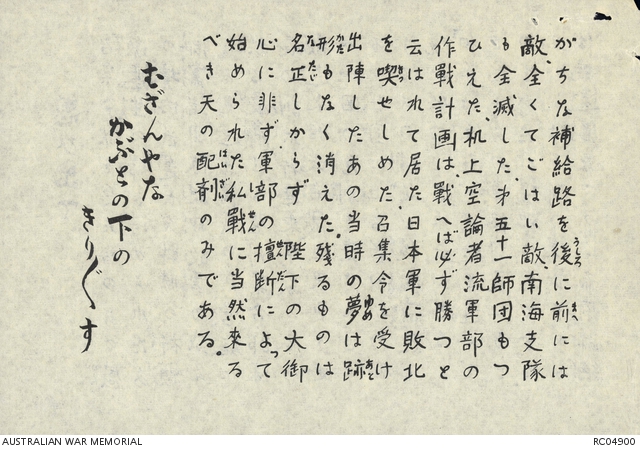 がちな補給路を後に前には
敵、全くてごはい敵、南海支隊
も全滅した、才五十一師団もつ
ひえた、机上空論者流軍部の
作戦計画は、戦へば必ず勝つと
云はれて居た日本軍に敗北
を喫せしめた、召集令を受け
出陣したあの当時の夢は跡
形もなく消えた、残るものは
名正しからず 陛下の大御
心に非ず、軍部の擅断によって
始められた私戦に当然来る
べき天の配剤のみである。
むざんやな
かぶとの下の
きり〴〵す
AUSTRALIAN WAR MEMORIAL
RC04900